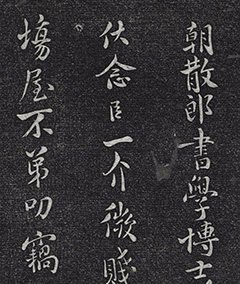 朝散郎書學博士
伏念臣一介微賤
場屋不第叨竊